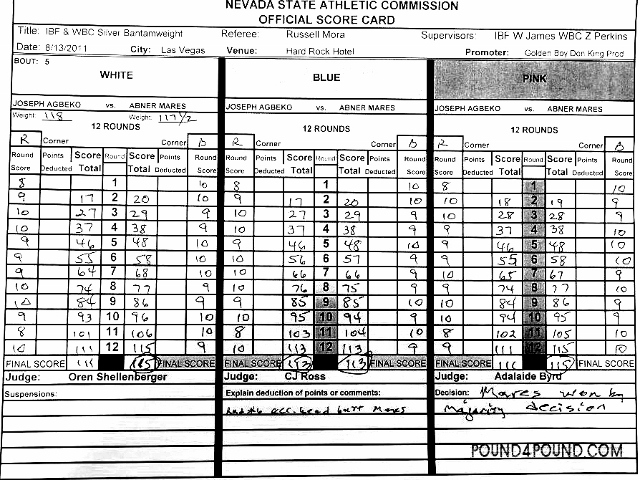 NEVADA STATE ATHLETIC COMMISSION
OFFICIAL SCORE CARD
Title: IBF & WBC Silver Bantamweight Referee: Russell Mora Supervisors: IBF W James WBC Z Perkins
Date: 8/13/2011 City: Las Vegas Venue: Hard Rock Hotel Promoter: Golden Boy Don King Prod
BOUT: 5
WHITE BLUE PINK
JOSEPH AGBEKO vs. ABNER MARES JOSEPH AGBEKO vs. ABNER MARES JOSEPH AGBEKO vs. ABNER MARES
Weight: 118 Weight: 117 1/2
12 ROUNDS 12 ROUNDS 12 ROUNDS
R Corner Corner B R Corner Corner B R Corner Corner B
Round Points Score Round Score Points Round Round Points Score Round Score Points Round Round Points Score Round Score Points Round
Score Deducted Total Total Deducted Score Score Deducted Total Total Deducted Score Score Deducted Total Total Deducted Score
8 1 10 8 1 10 8 1 10
9 17 2 20 10 9 17 2 20 10 10 18 2 19 9
10 27 3 29 9 10 27 3 29 9 10 28 3 28 9
10 37 4 38 9 10 37 4 38 9 9 37 4 38 10
9 46 5 48 10 9 46 5 48 10 9 46 5 48 10
9 55 6 58 10 10 56 6 57 9 9 55 6 58 10
9 64 7 68 10 10 66 7 66 9 10 65 7 67 9
10 74 8 77 9 10 76 8 75 9 9 74 8 77 10
10 84 9 86 9 9 85 9 85 10 10 84 9 86 9
9 93 10 96 10 10 95 10 94 9 10 94 10 95 9
8 101 11 106 10 8 103 11 104 10 8 102 11 105 10
10 111 12 115 9 10 113 12 113 9 9 111 12 115 10
FINAL SCORE 111 115 FINAL SCORE FINAL SCORE 113 113 FINAL SCORE FINAL SCORE 111 115 FINAL SCORE
Judge: Oren Shellenberger Judge: CJ Ross Judge: Adalaide Byrd
Suspensions: Explain deduction of points or comments: Decision: Mares won by
acc. head butt Mares Majority decision
POUND4POUND.COM